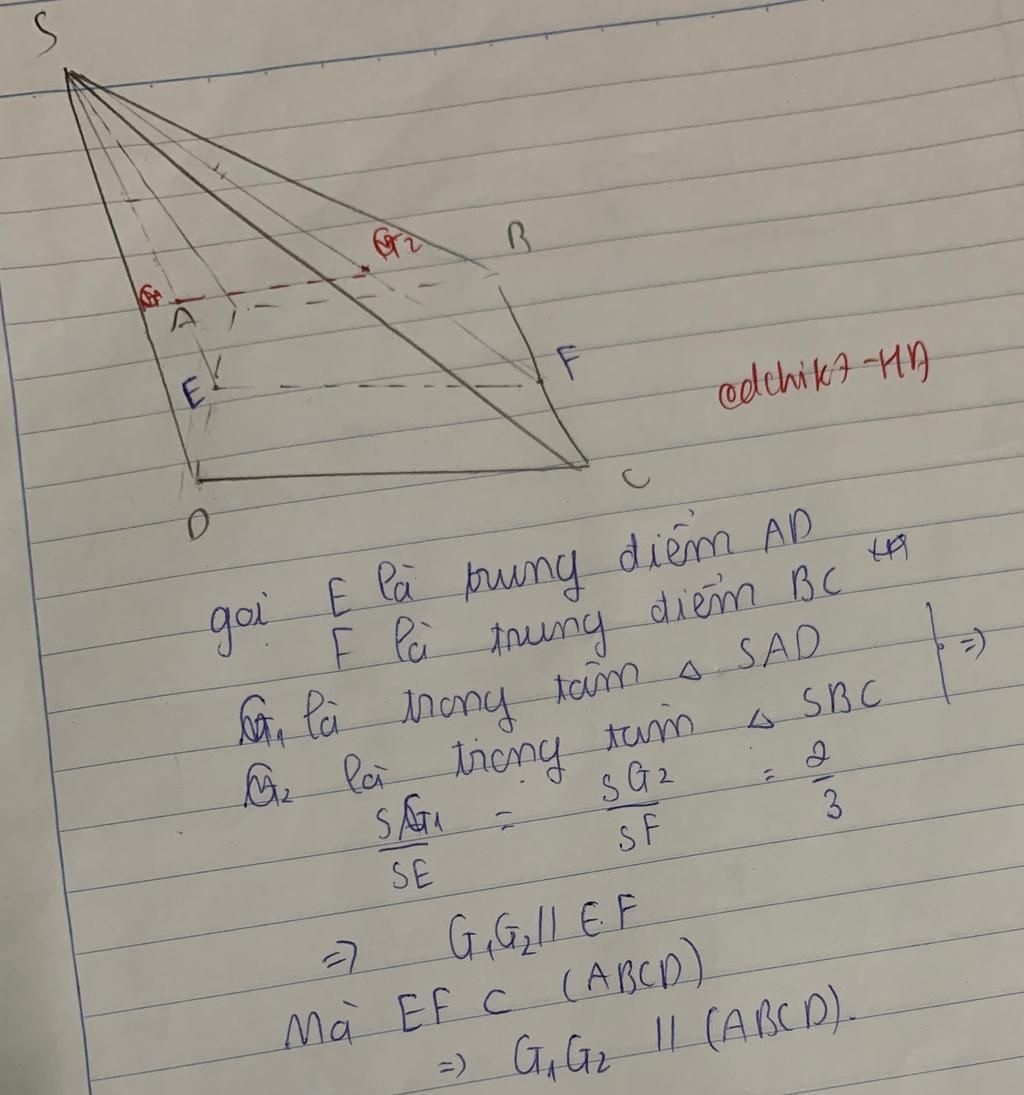 S
G₂
B
G₁
A
E
F
@dchik7-HA
D
C
gọi E là trung điểm AD
F là trung điểm BC
HA
G₁ là trọng tâm △ SAD
G₂ là trọng tâm △ SBC } =>
SG₁/SE = SG₂/SF = 2/3
=> G₁G₂ // EF
Mà EF ⊂ (ABCD)
=> G₁G₂ // (ABCD).